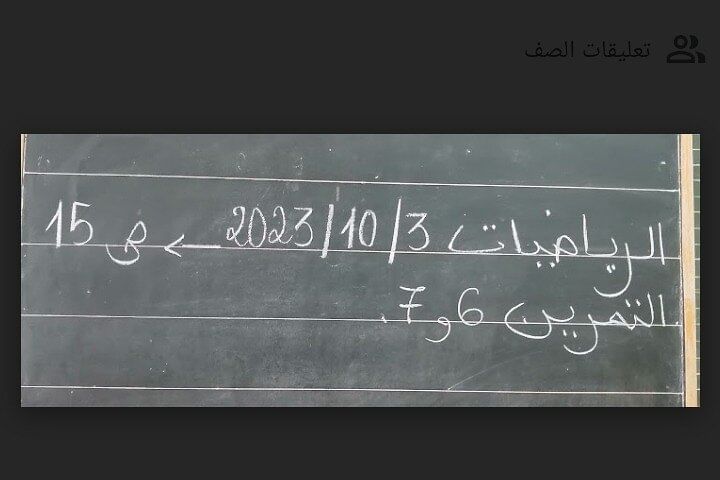 تعليقات الصف
الرياضيات 3/10/2023 ← ص 15
التمرين 6 و 7.